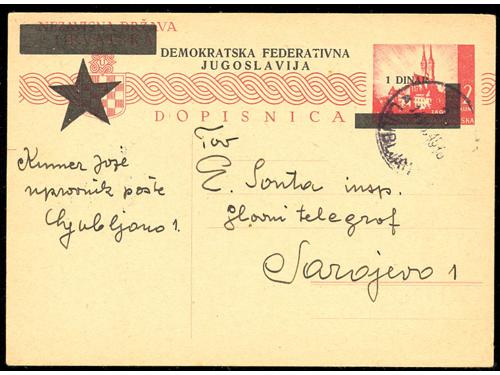 NEZAVISNA DRŽAVA
HRVATSKA
DEMOKRATSKA FEDERATIVNA
JUGOSLAVIJA
1 DINAR
2
DOPISNICA
Tov
Kumer Jože
upravnik pošte
Ljubljana 1.
E. Sonta insp.
glavni telegrof
Sarajevo 1